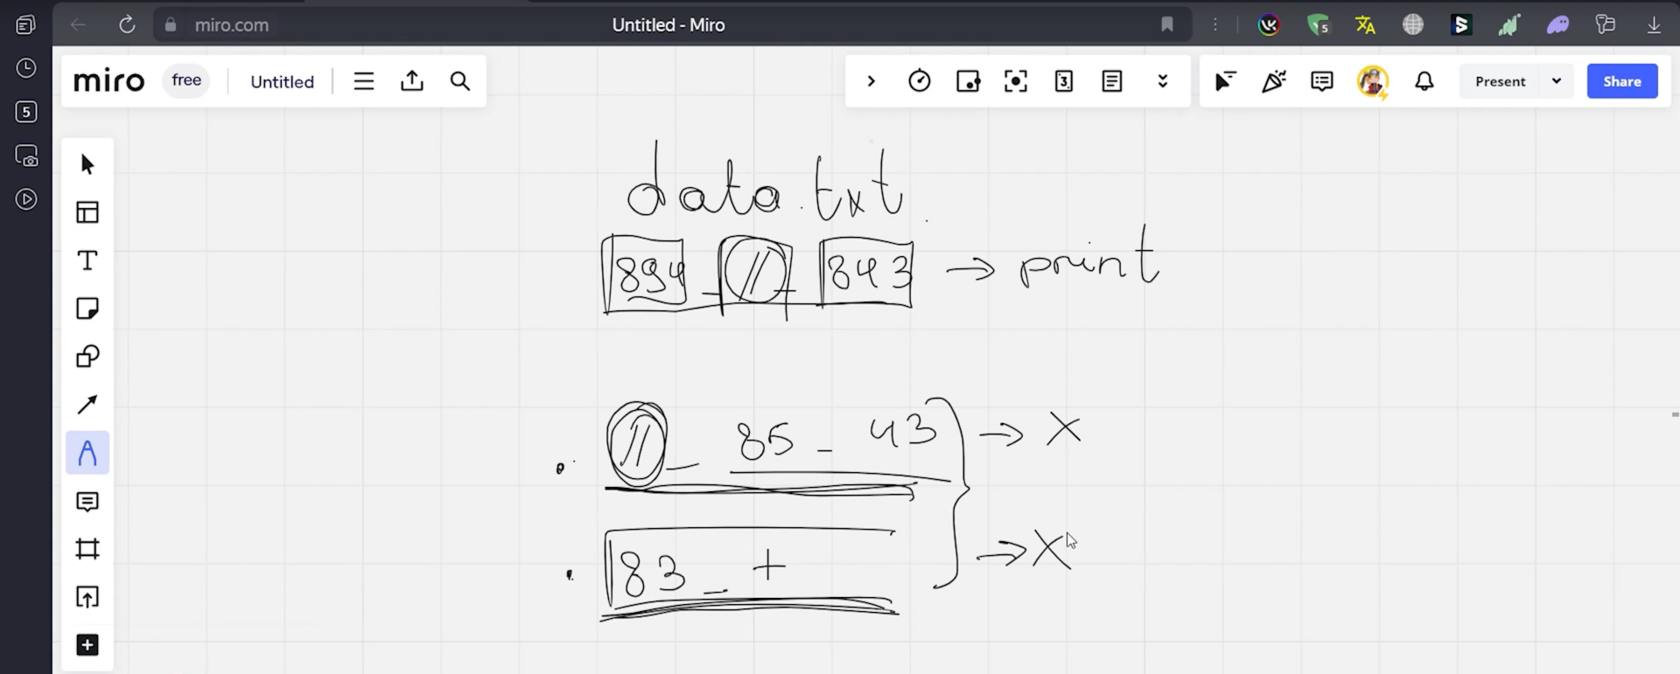 miro.com
Untitled - Miro
5
5
miro free Untitled
3
Present
Share
T
data.txt
894 _ // _ 843 → print
// _ 85 _ 43 → X
83 _ + → X